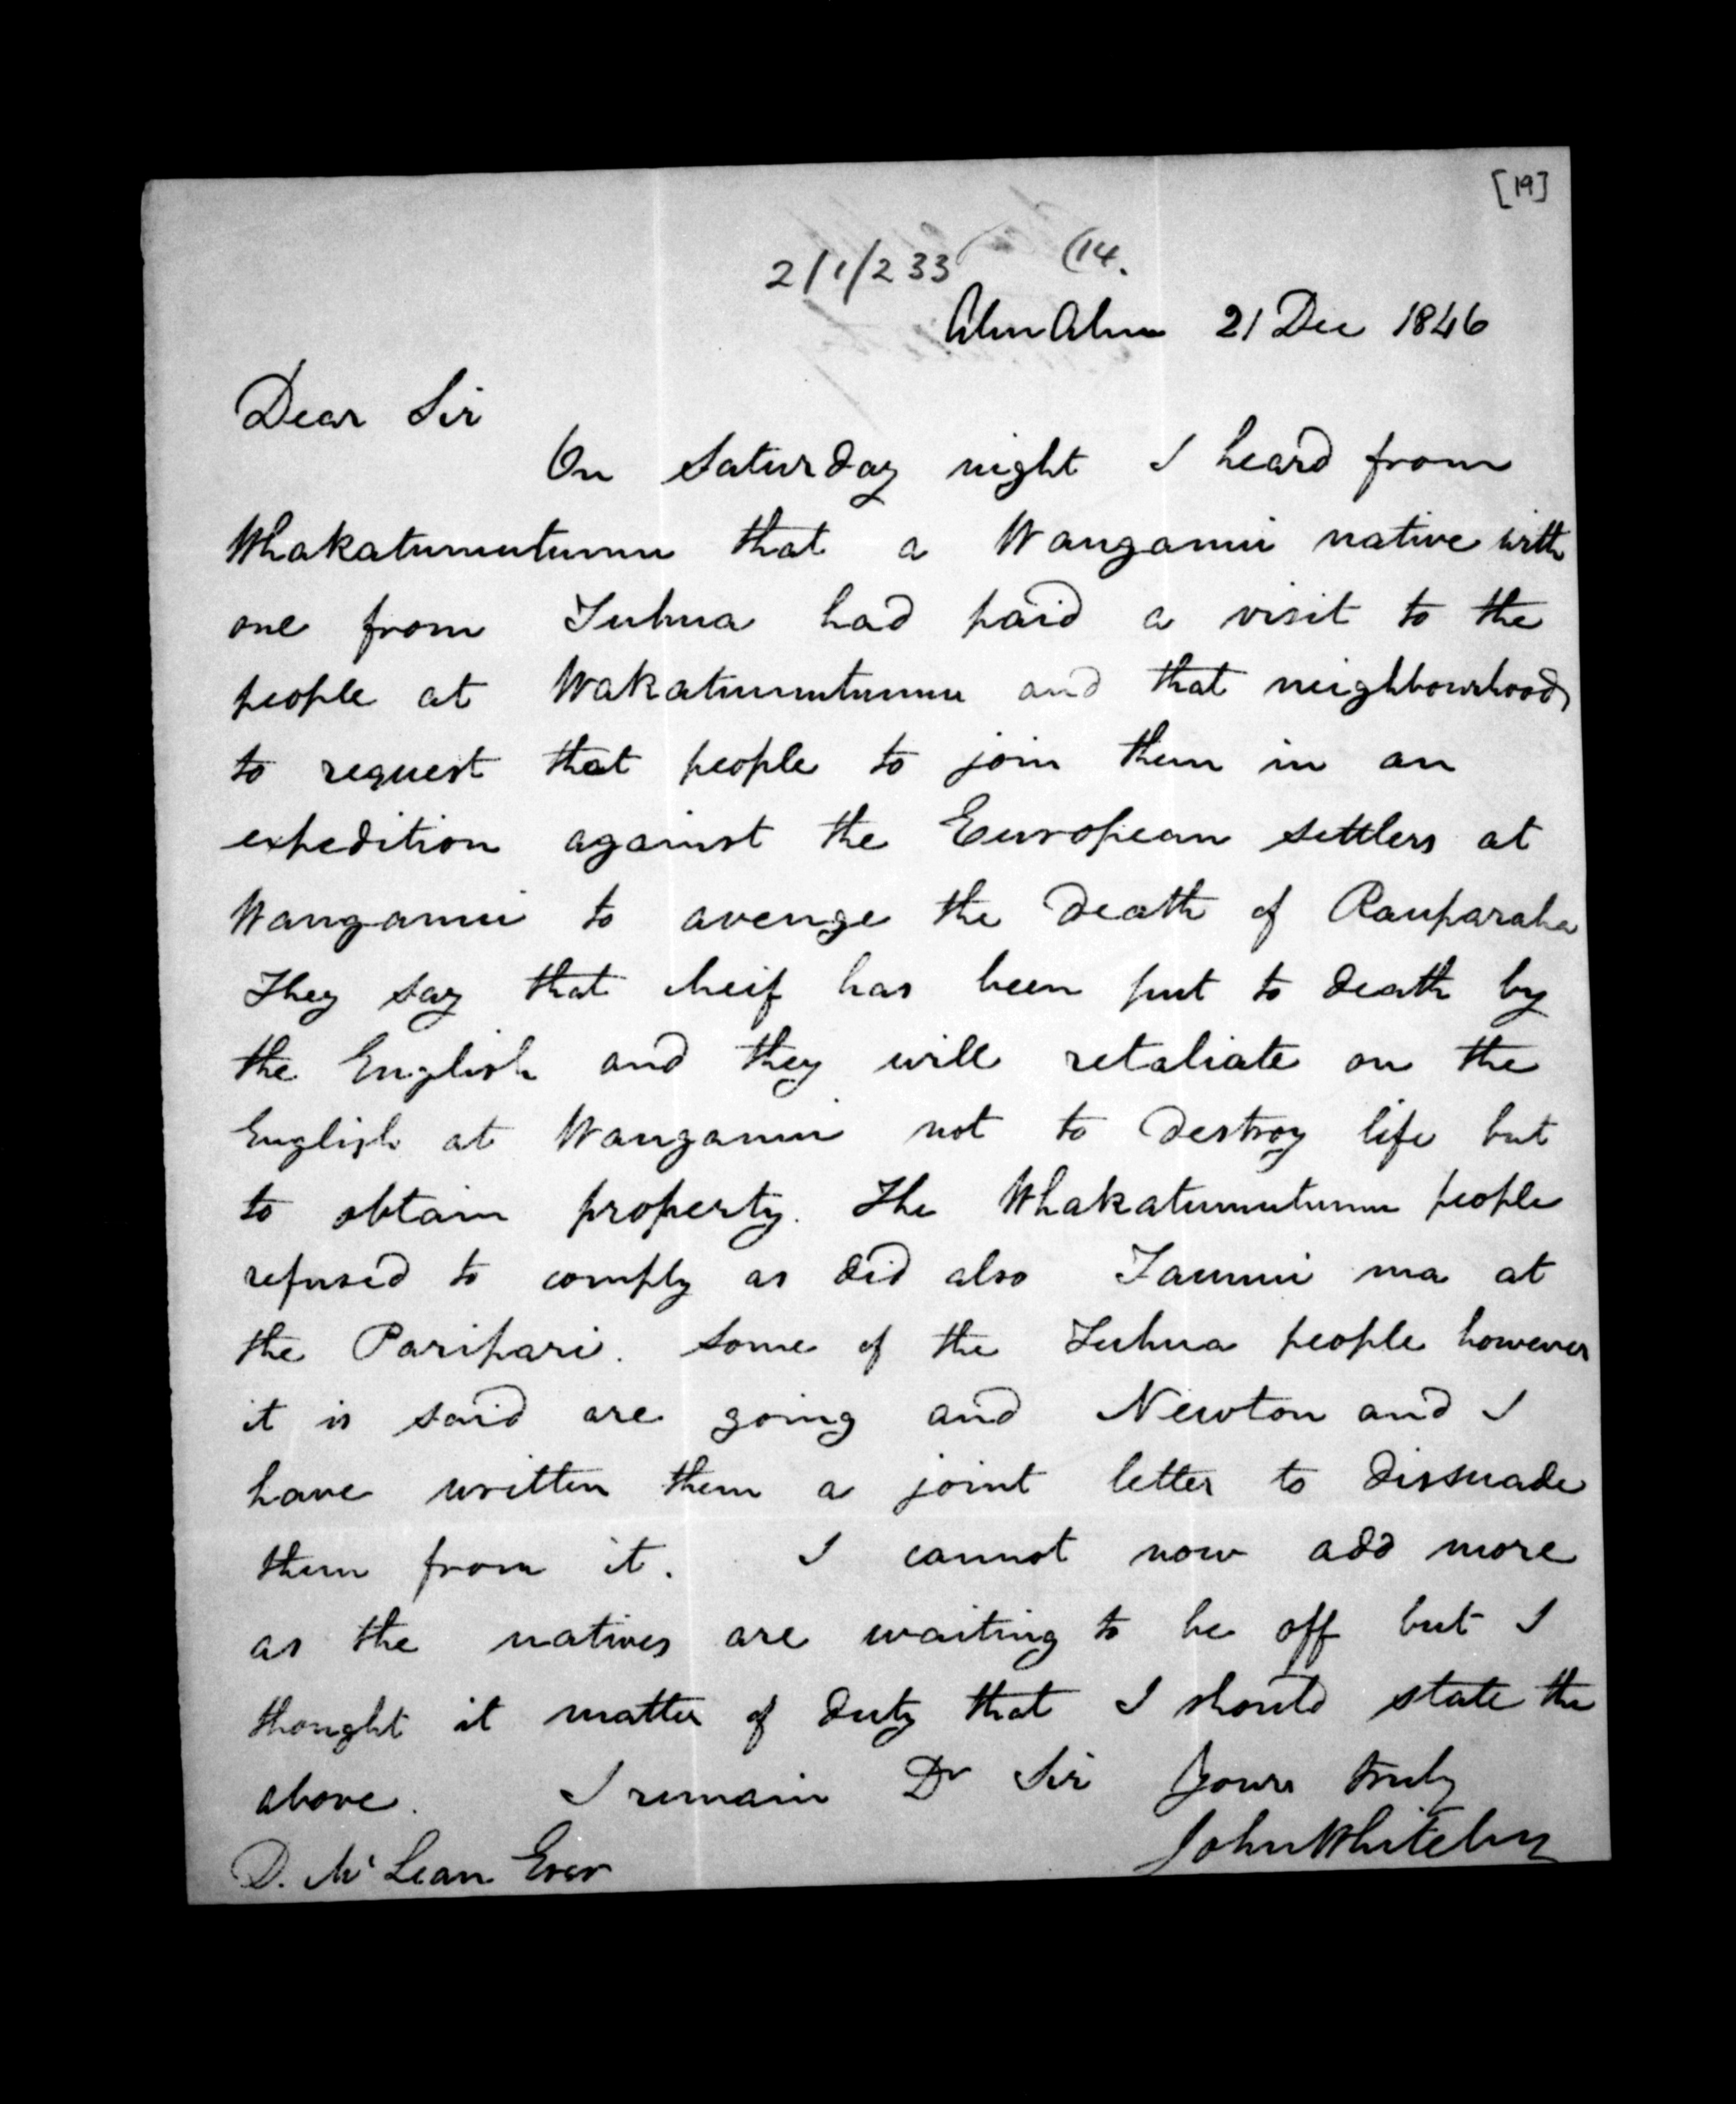 [19]
2/1/233 (14.
Ahu Ahu 21 Dec 1846
Dear Sir
On Saturday night I heard from
Whakatumutumu that a Wanganui native with
one from Tuhua had paid a visit to the
people at Wakatumutumu and that neighbourhood
to request that people to join them in an
expedition against the European settlers at
Wanganui to avenge the death of Rauparaha
They say that cheif has been put to death by
the English and they will retaliate on the
English at Wanganui not to destroy life but
to obtain property. The Whakatumutumu people
refused to comply as did also Taunui ma at
the Paripari. Some of the Tuhua people however
it is said are going and Newton and I
have written them a joint letter to dissuade
them from it. I cannot now add more
as the natives are waiting to be off but I
thought it matter of duty that I should state the
above. I remain Dr Sir Yours truly
John Whiteley
D. McLean Esqr